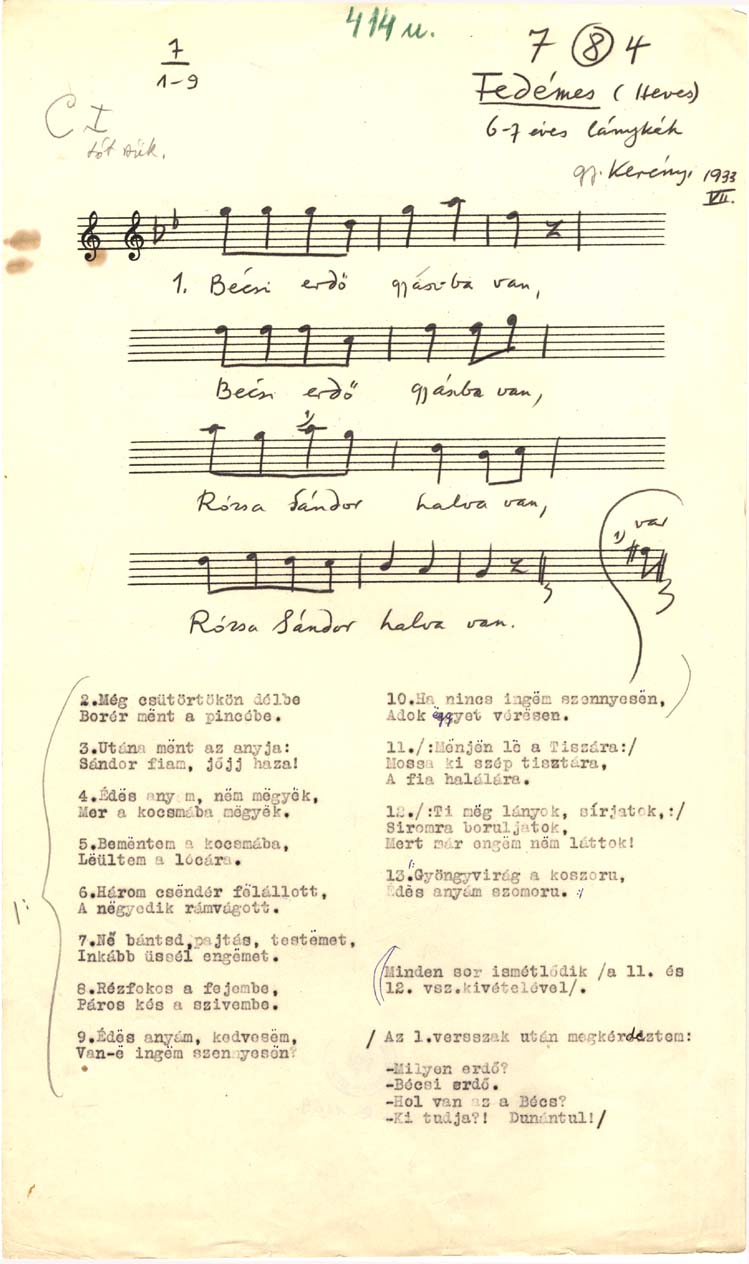 414 u.
7
1-9
7 8 4
Fedémes (Heves)
6-7 éves lánykák
gy. Kerényi 1933
VII.
C I
tót
1. Bécsi erdő gyász-ba van,
Bécsi erdő gyászba van,
Rózsa Sándor halva van,
1) var
Rózsa Sándor halva van.
2.Még csütörtökön délbe
Borér mënt a pincébe.
3.Utána mënt az anyja:
Sándor fiam, jőjj haza!
4.Édës anyám, nëm mëgyëk,
Mer a kocsmába mëgyëk.
5.Bemëntem a kocsmába,
Lëültem a lócára.
6.Három csëndér fëlállott,
A nëgyedik rámvágott.
7.Në bántsd,pajtás, testëmet,
Inkább üssél engëmet.
8.Rézfokos a fejembe,
Páros kés a szivembe.
9.Édës anyám, kedvesëm,
Van-ë ingëm szennyesën?
10.Ha nincs ingëm szennyesën,
Adok ëggyet vérësen.
11./:Mënjën lë a Tiszára:/
Mossa ki szép tisztára,
A fia halálára.
12./:Ti mëg lányok, sírjatok,:/
Siromra boruljatok,
Mert már engëm nëm láttok!
13./:Gyöngyvirág a koszoru,
Édës anyám szomoru. :/
/Minden sor ismétlődik /a 11. és
12. vsz.kivételével/.
/ Az 1.versszak után megkérdeztem:
-Milyen erdő?
-Bécsi erdő.
-Hol van az a Bécs?
-Ki tudja?! Dunántul!/